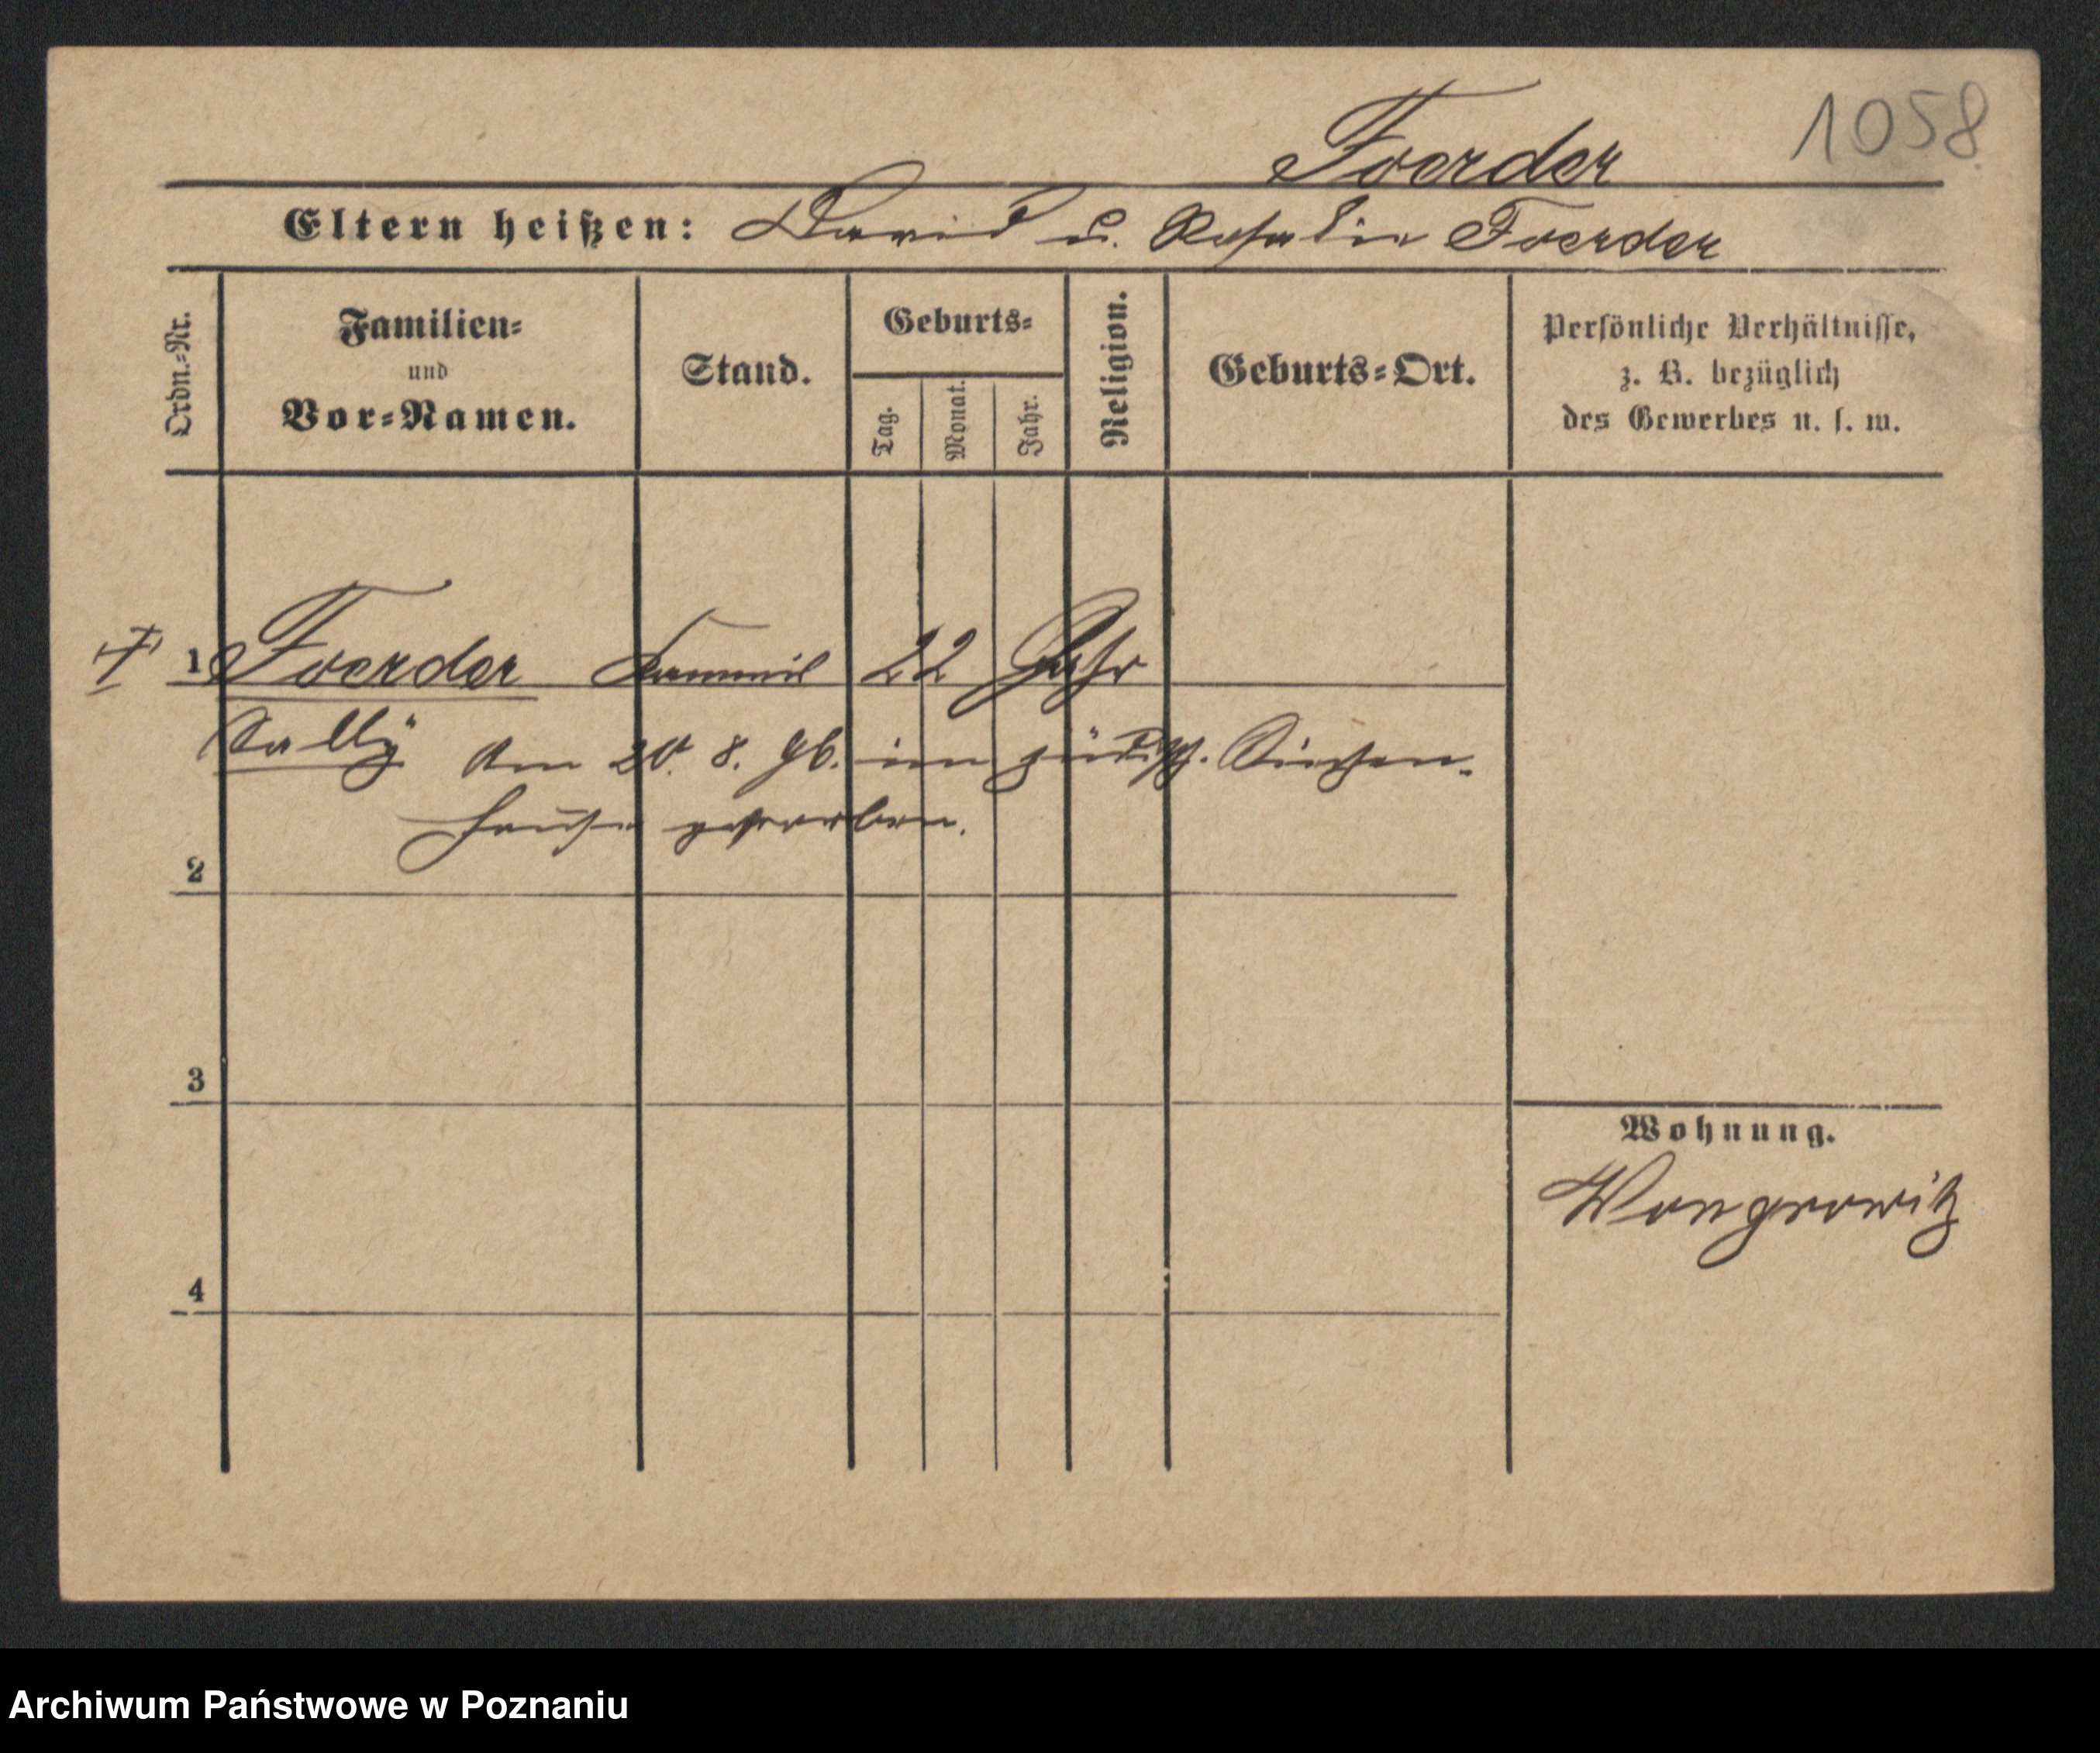 1058
Foerder
Eltern heißen: David u. Rosalie Foerder
Ordn.-Nr.
Familien-
und
Vor-Namen.
Stand.
Geburts-
Tag.
Monat.
Jahr.
Religion.
Geburts-Ort.
Persönliche Verhältnisse,
z. B. bezüglich
des Gewerbes u. s. w.
1 Foerder 22 Jahr
Sally Am 20. 8. 96. im jüdisch. Siechen-
hause gestorben.
2
3
Wohnung.
Wongrowitz
4
Archiwum Państwowe w Poznaniu